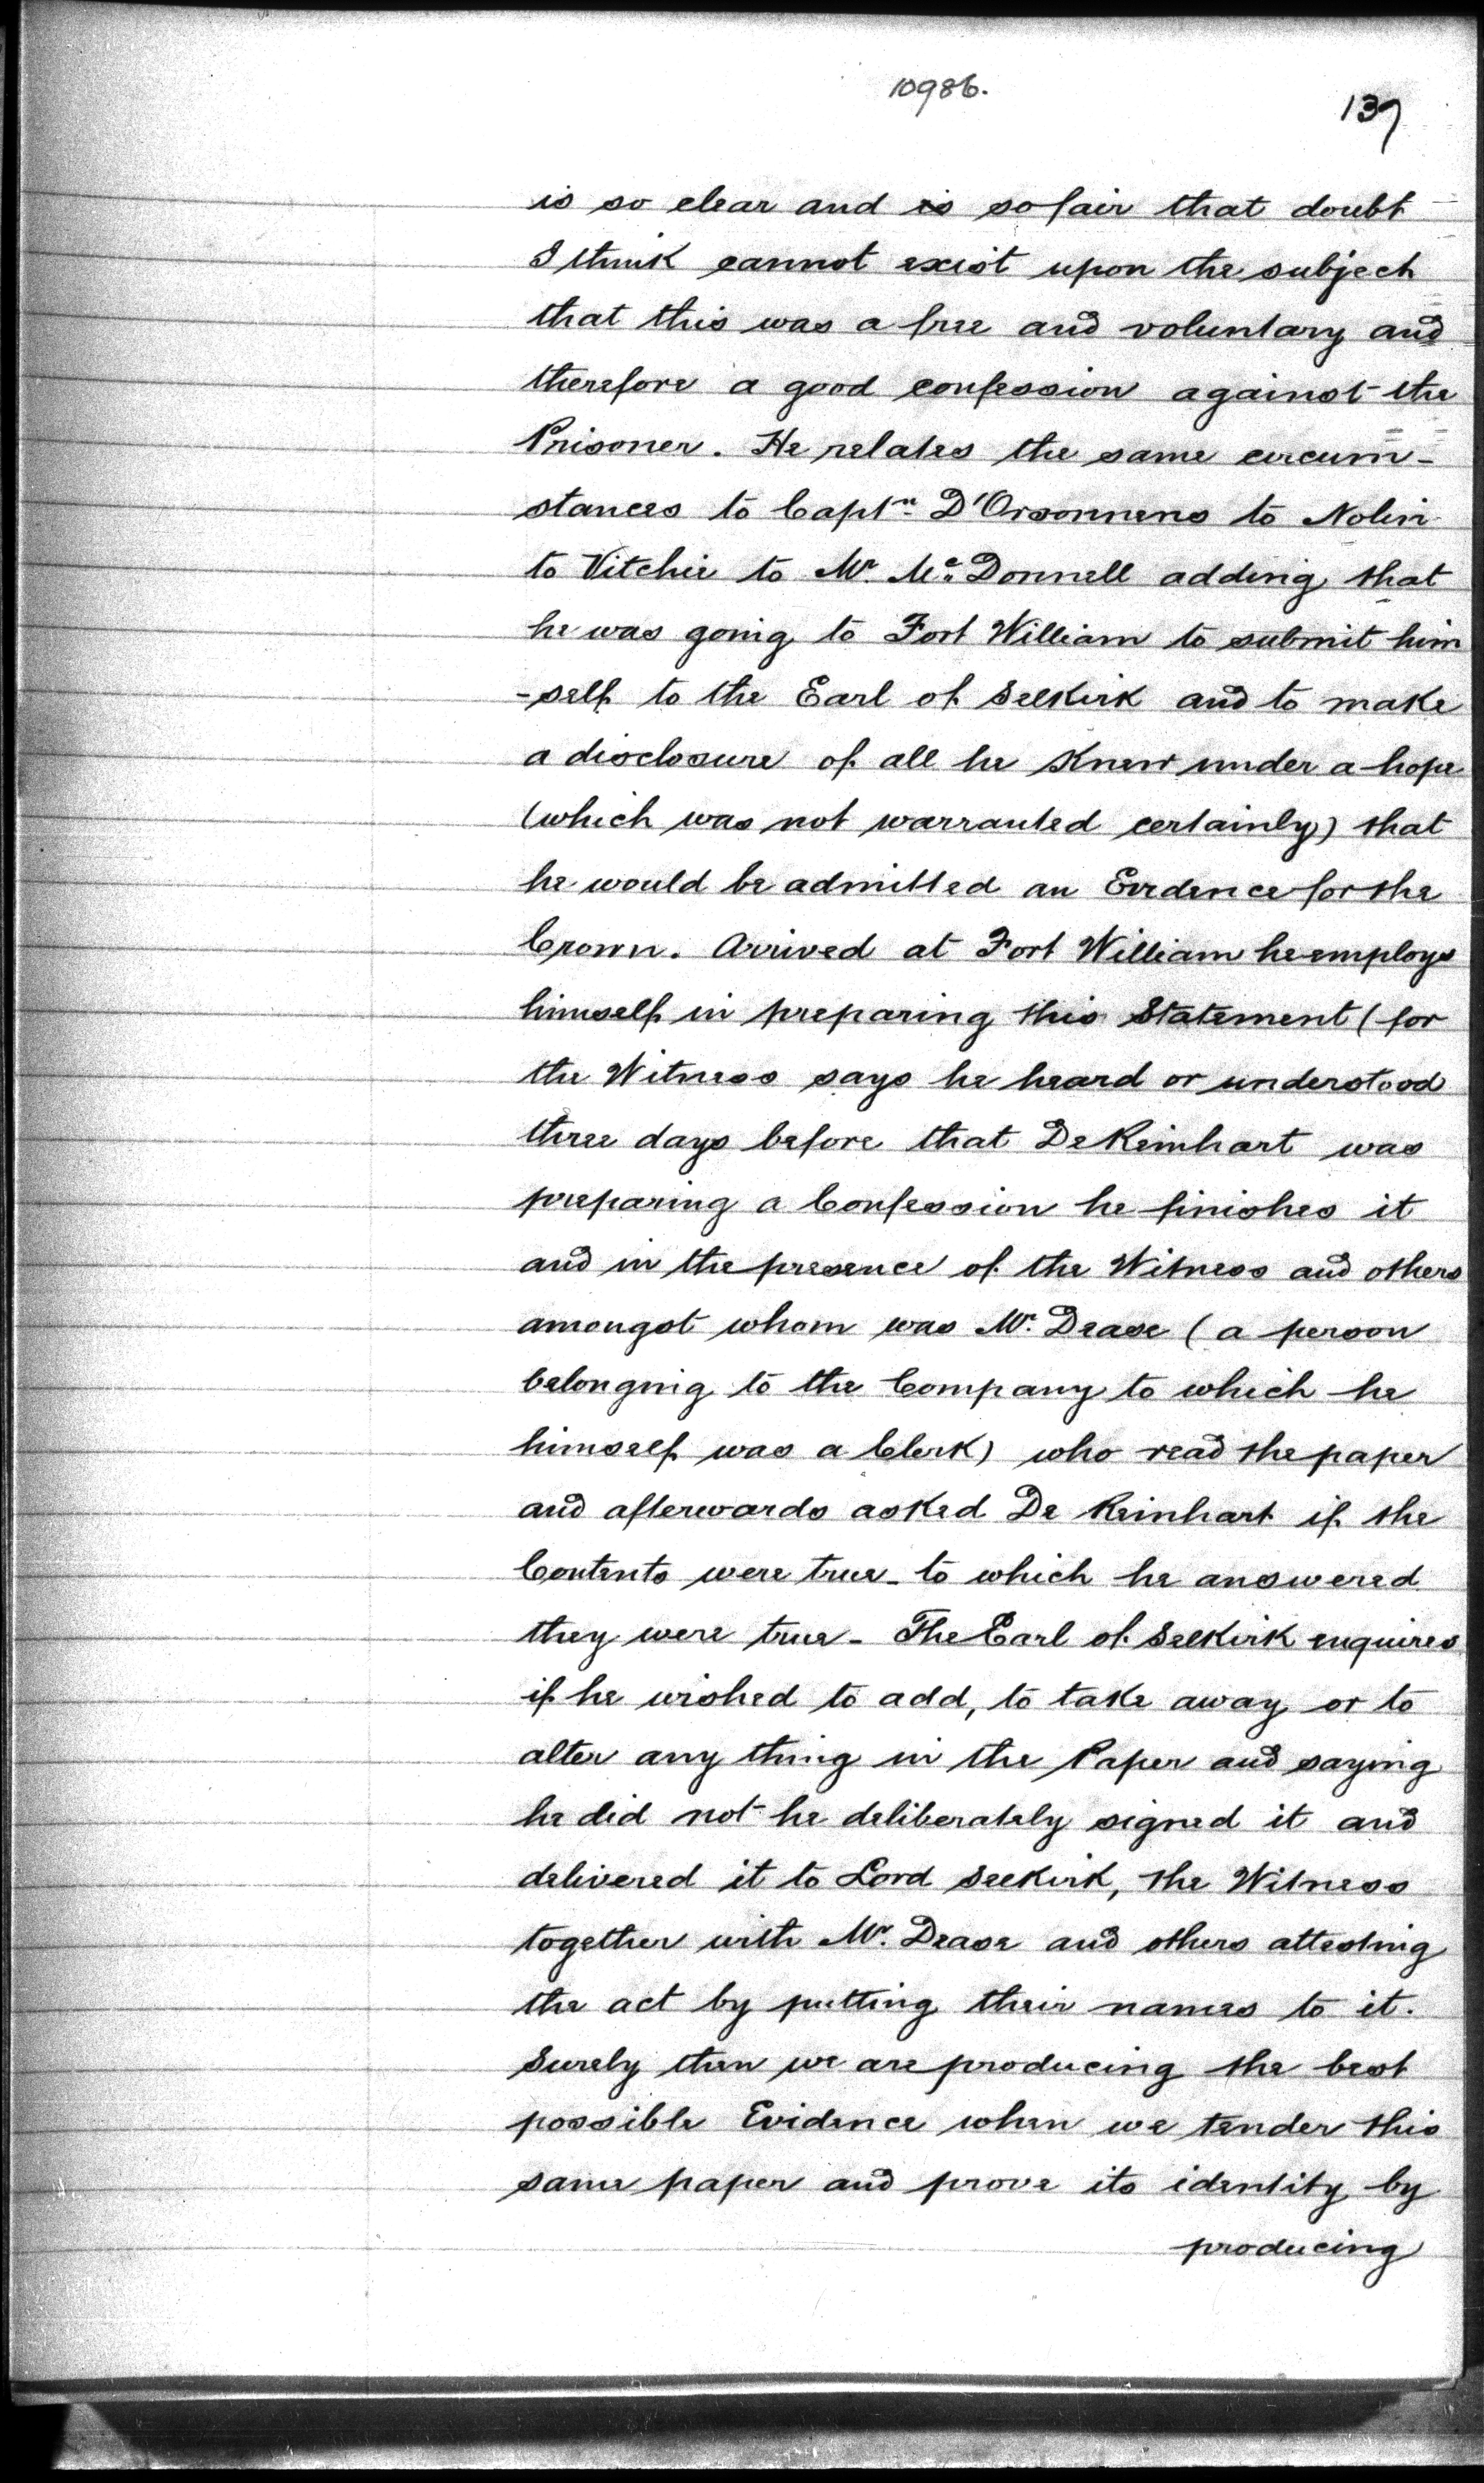 10986.
137
is so clear and is so fair that doubt
I think cannot exist upon the subject
that this was a free and voluntary and
therefore a good confession against the
Prisoner. He relates the same circum-
stances to Captn. D'Orsonnens to Nolin
to Vitchie to Mr. Mc. Donnell adding that
he was going to Fort William to submit him
-self to the Earl of Selkirk and to make
a disclosure of all he knew under a hope
(which was not warranted certainly) that
he would be admitted an Evidence for the
Crown. Arrived at Fort William he employs
himself in preparing this Statement (for
the Witness says he heard or understood
three days before that De Reinhart was
preparing a Confession he finishes it
and in the presence of the Witness and others
amongst whom was Mr. Dease (a person
belonging to the Company to which he
himself was a Clerk) who read the paper
and afterwards asked De Reinhart if the
Contents were true - to which he answered
they were true - The Earl of Selkirk enquires
if he wished to add, to take away or to
alter any thing in the Paper and saying
he did not he deliberately signed it and
delivered it to Lord Selkirk, the Witness
together with Mr. Dease and others attesting
the act by putting their names to it.
Surely then we are producing the best
possible Evidence when we tender this
same paper and prove its identity by
producing